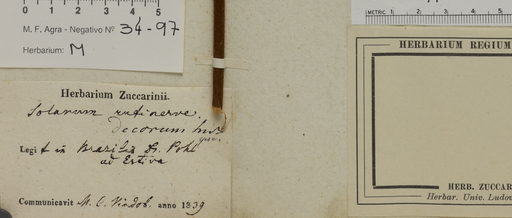 0 1 2 3 4 5
M. F. Agra - Negativo Nº 34-97
Herbarium: M
METRIC 1 2 3 4 5
HERBARIUM REGIUM
Herbarium Zuccarinii.
Solanum rufinerve
decorum
Legit in Brasilia Dr. Pohl
ad Estiva
Communicavit M. C. Vindob. anno 1839
HERB. ZUCCAR
Herbar. Univ. Ludov